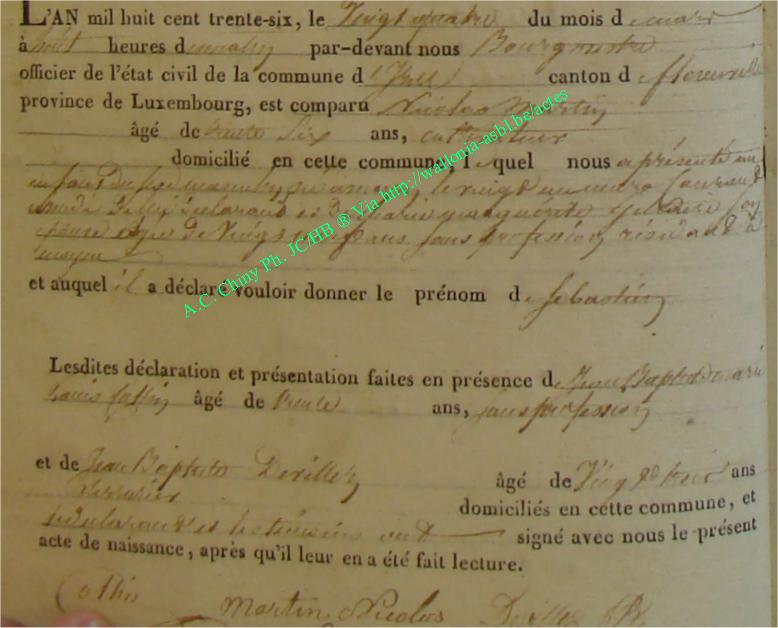 L'AN mil huit cent trente-six, le Vingt quatre du mois de mars
à huit heures du matin par-devant nous Bourgmestre
officier de l'état civil de la commune d canton de florenville
province de Luxembourg, est comparu Nicolas Martin
âgé de trente Six ans,
domicilié en cette commune, lequel nous a présenté un
enfant du sexe masculin le vingt un mars courant
déclarant et de marie marguerite son
épouse agée de Vingt ans sans profession
et auquel il a déclaré vouloir donner le prénom de Sebastien
A.C. Chiny Ph. JC/HB ® Via http://wallonia-asbl.be/actes
Lesdites déclaration et présentation faites en présence de Jean Baptiste marie
Louis Cathis âgé de trente ans, sans profession
et de Jean Baptiste Deviller âgé de Vingt trois ans
serrurier domiciliés en cette commune, et
le declarant et les témoins ont signé avec nous le présent
acte de naissance, après qu'il leur en a été fait lecture.
Cathis Martin Nicolas Deviller JB